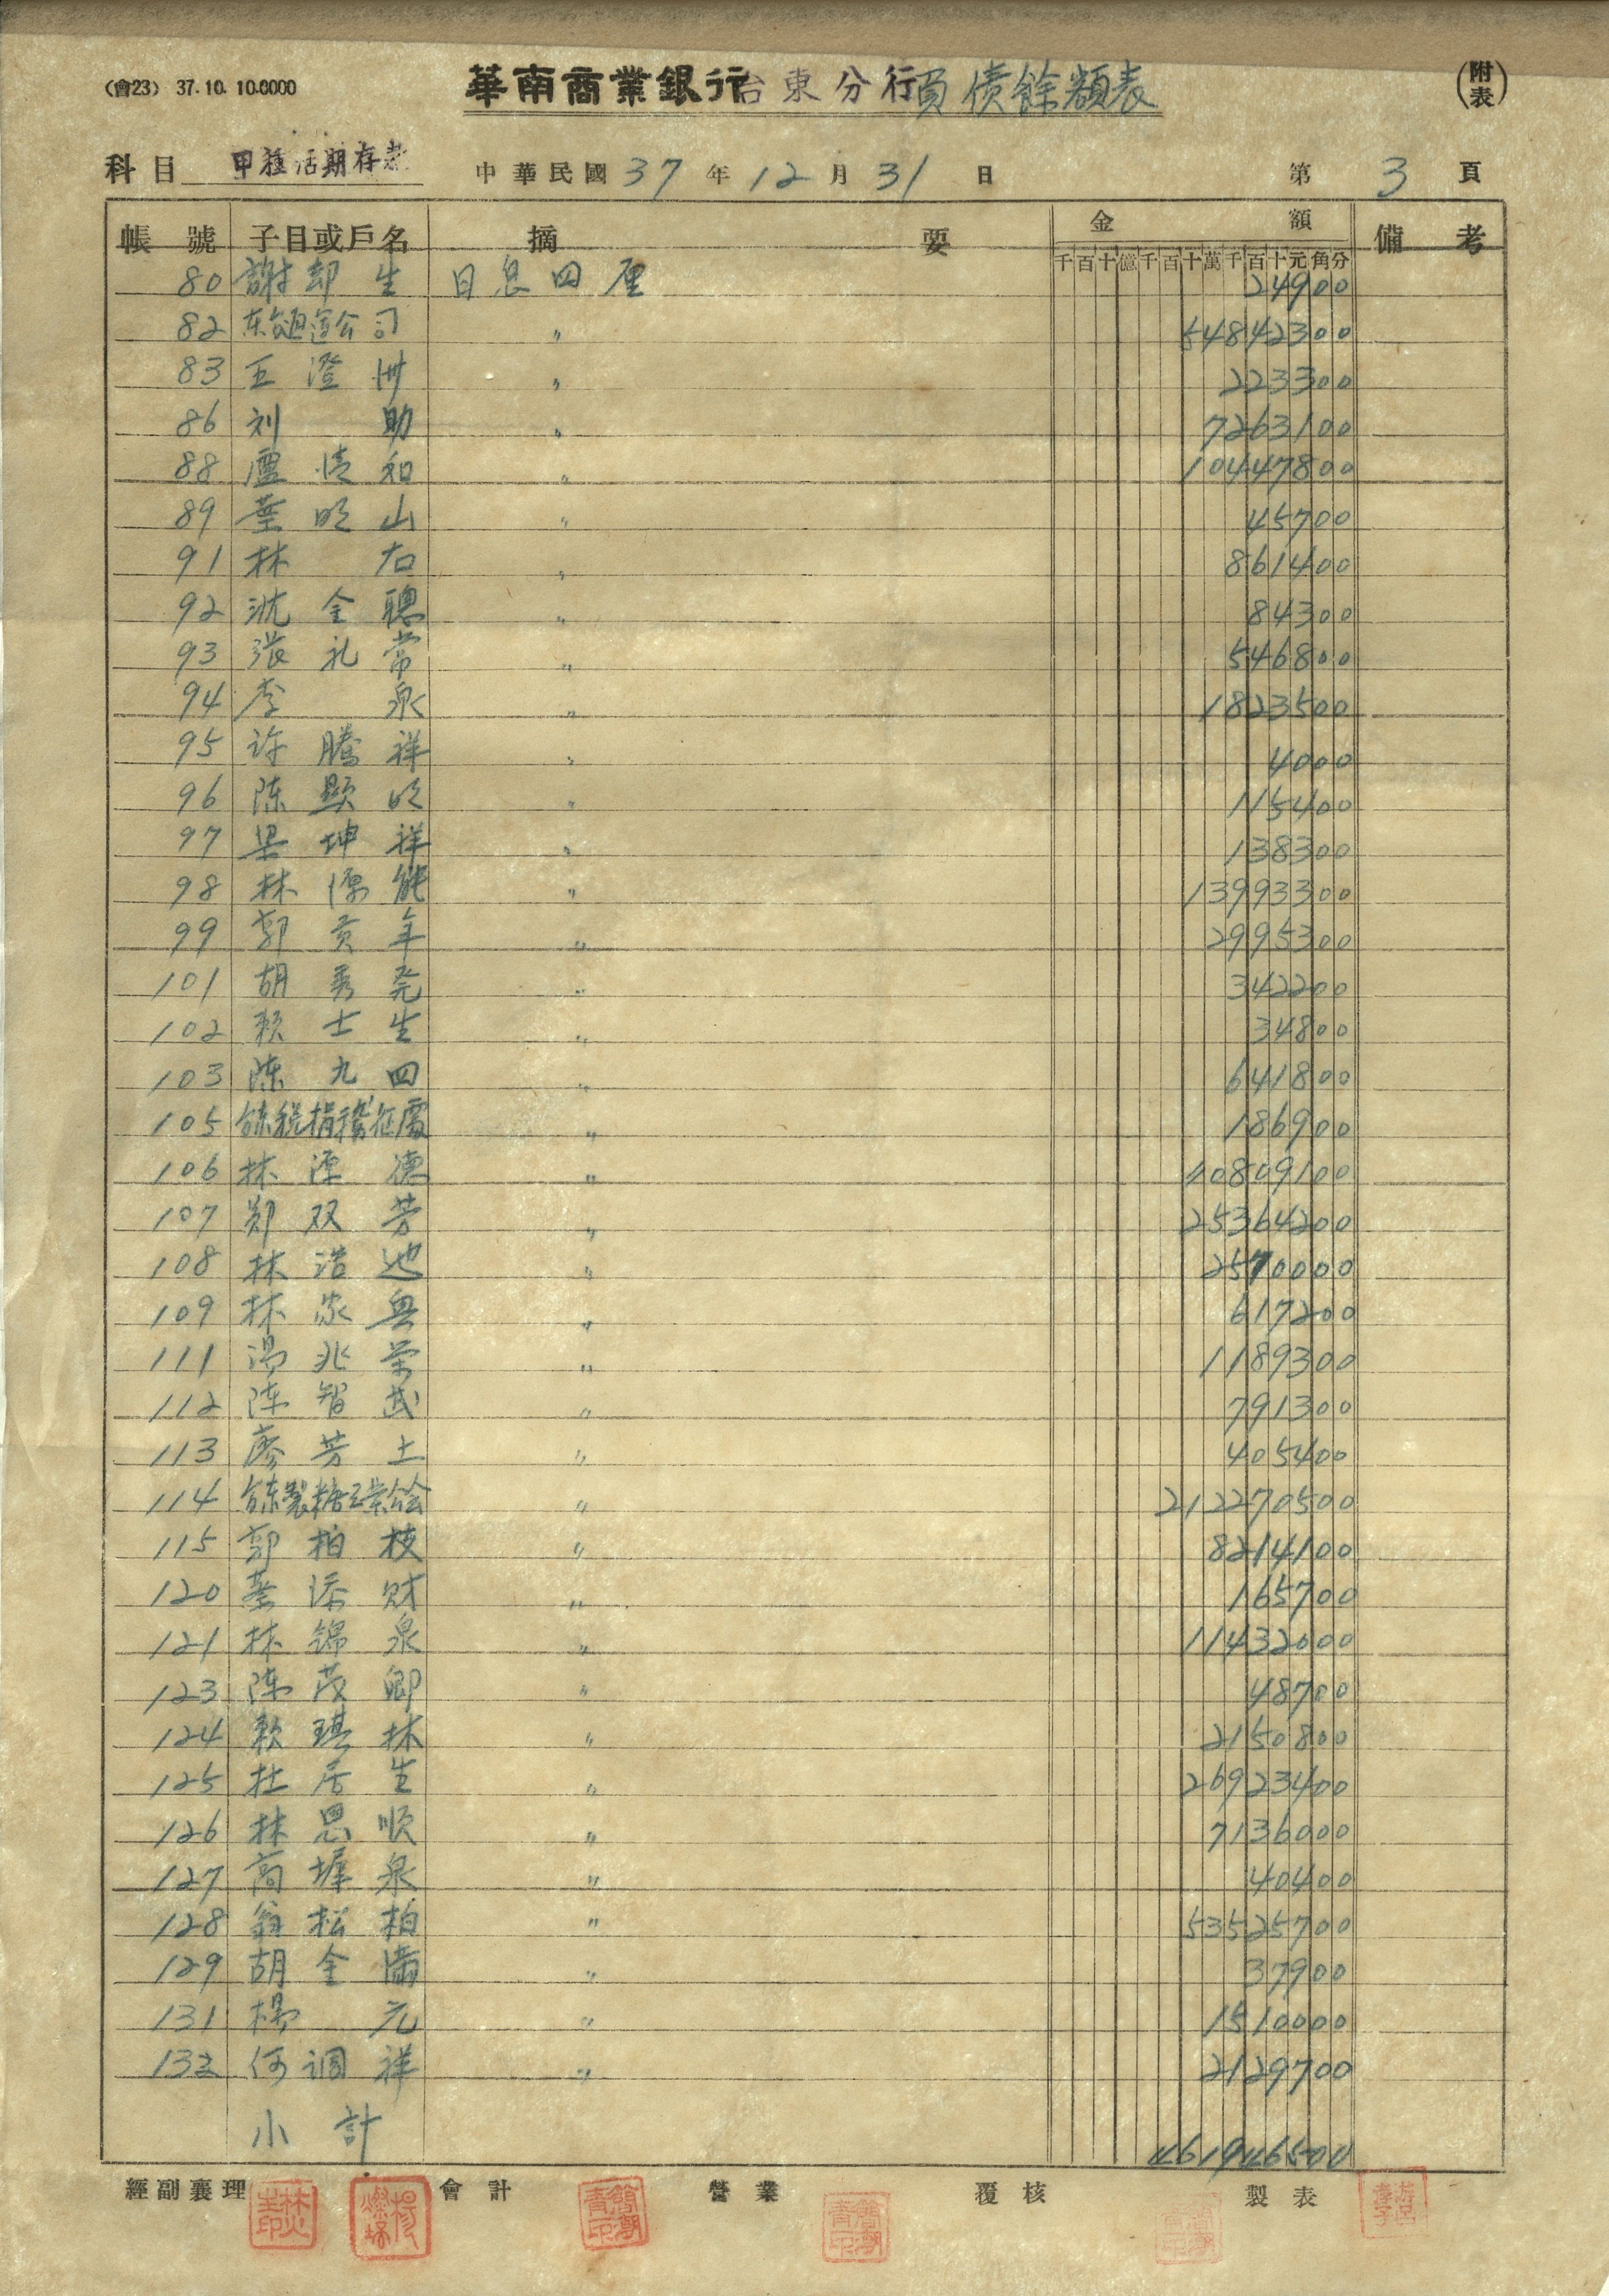 (會23) 37.10.10.0000
華南商業銀行台東分行負債餘額表
(附表)
科目 甲種活期存款 中華民國37年12月31日 第3頁
帳號 子目或戶名 摘要 金額 備考
千百十億千百十萬千百十元角分
80 謝却生 日息四厘 24900
82 〃 54842300
83 王澄洲 〃 223300
86 刘助 〃 7263100
88 盧清和 〃 10447800
89 葉明山 〃 45700
91 林右 〃 861400
92 沈全聰 〃 84300
93 張礼常 〃 546800
94 李泉 〃 1823500
95 许腾祥 〃 4000
96 陈顕明 〃 115400
97 梁坤祥 〃 138300
98 林 能 〃 13993300
99 郭貢年 〃 2995300
101 胡秀発 〃 342200
102 赖士生 〃 34800
103 陈九四 〃 641800
105 台东税捐稽征處 〃 186900
106 林 德 〃 40809100
107 郑双芳 〃 25364200
108 林浩池 〃 2570000
109 林家興 〃 617200
111 湯兆荣 〃 1189300
112 陈智武 〃 791300
113 廖芳土 〃 405400
114 〃 212270500
115 郭柏枝 〃 8214100
120 葉添财 〃 165700
121 林錦泉 〃 11432000
123 陈茂卿 〃 48700
124 赖琪林 〃 2150800
125 杜居生 〃 26923400
126 林思順 〃 7136000
127 高墀泉 〃 40400
128 翁松柏 〃 53525700
129 胡金满 〃 37900
131 楊元 〃 1510000
132 何调祥 〃 2129700
小計 461946500
經副襄理 會計 營業 覆核 製表